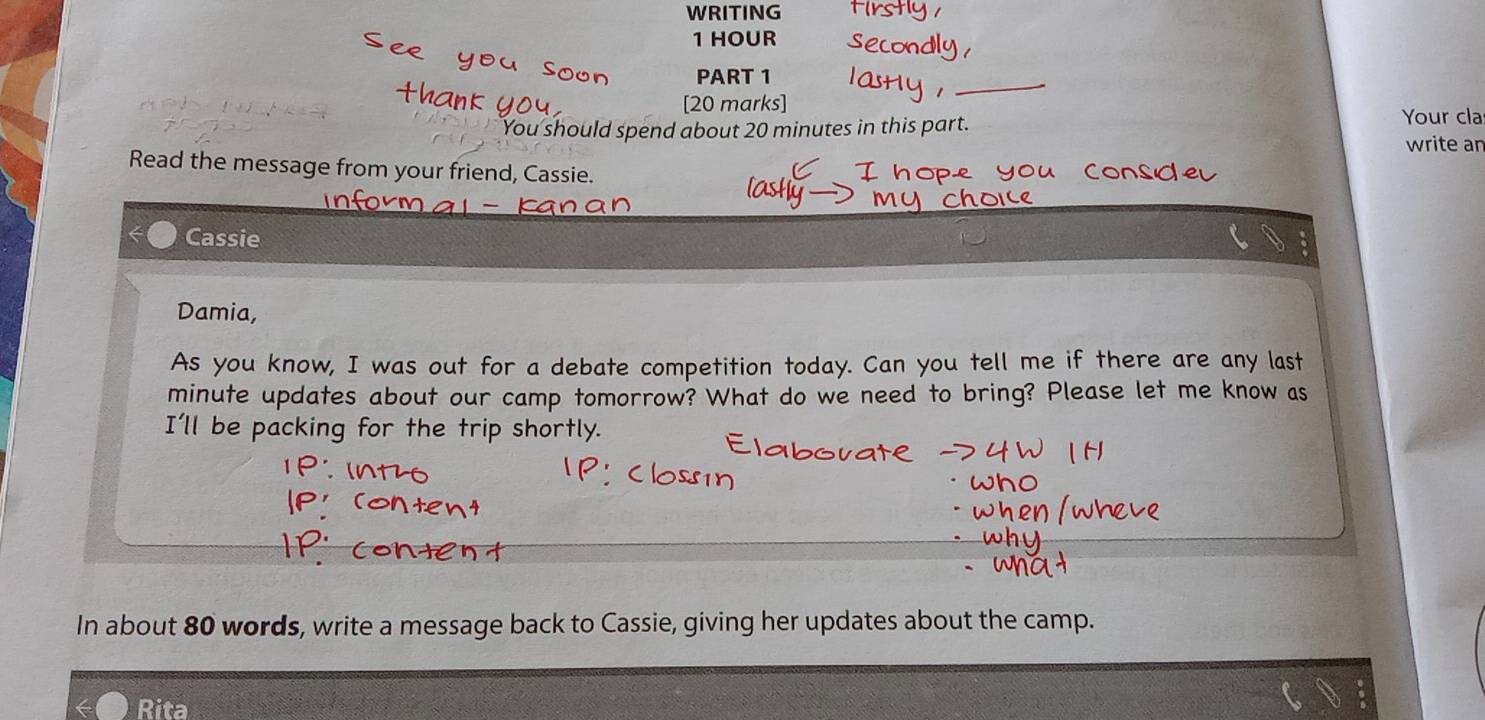 WRITING
1 HOUR
PART 1
[20 marks]
Firstly,
secondly,
lastly, ____
See you soon
thank you,
You should spend about 20 minutes in this part.
Your cla
write an
Read the message from your friend, Cassie.
lastly → I hope you consider
my choice
informal - kanan
Cassie
Damia,
As you know, I was out for a debate competition today. Can you tell me if there are any last
minute updates about our camp tomorrow? What do we need to bring? Please let me know as
I'll be packing for the trip shortly.
1P: intro
1P: content
1P: content
1P: clossin
Elaborate → 4W 1H
· who
· when/where
· why
· what
In about 80 words, write a message back to Cassie, giving her updates about the camp.
Rita